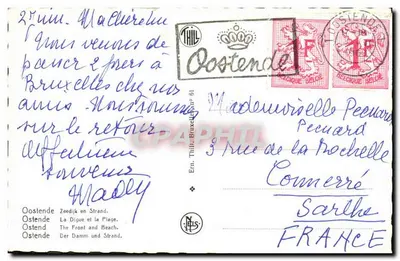 27 juin. Ma chère
Nous venons de
passer 2 jours à
Bruxelles chez nos
amis. Nous sommes
sur le retour.
Affectueux
souvenir
Mady
Oostende Zeedijk en Strand.
Ostende La Digue et la Plage.
Ostend The Front and Beach.
Ostend Der Damm und Strand.
Ern. Thill, Bruxelles
NELS
THILL
Oostende
OOSTENDE
1F
BELGIQUE BELGIË
1F
BELGIQUE BELGIË
Mademoiselle
3 rue de la Rochelle
Connerré
Sarthe
FRANCE